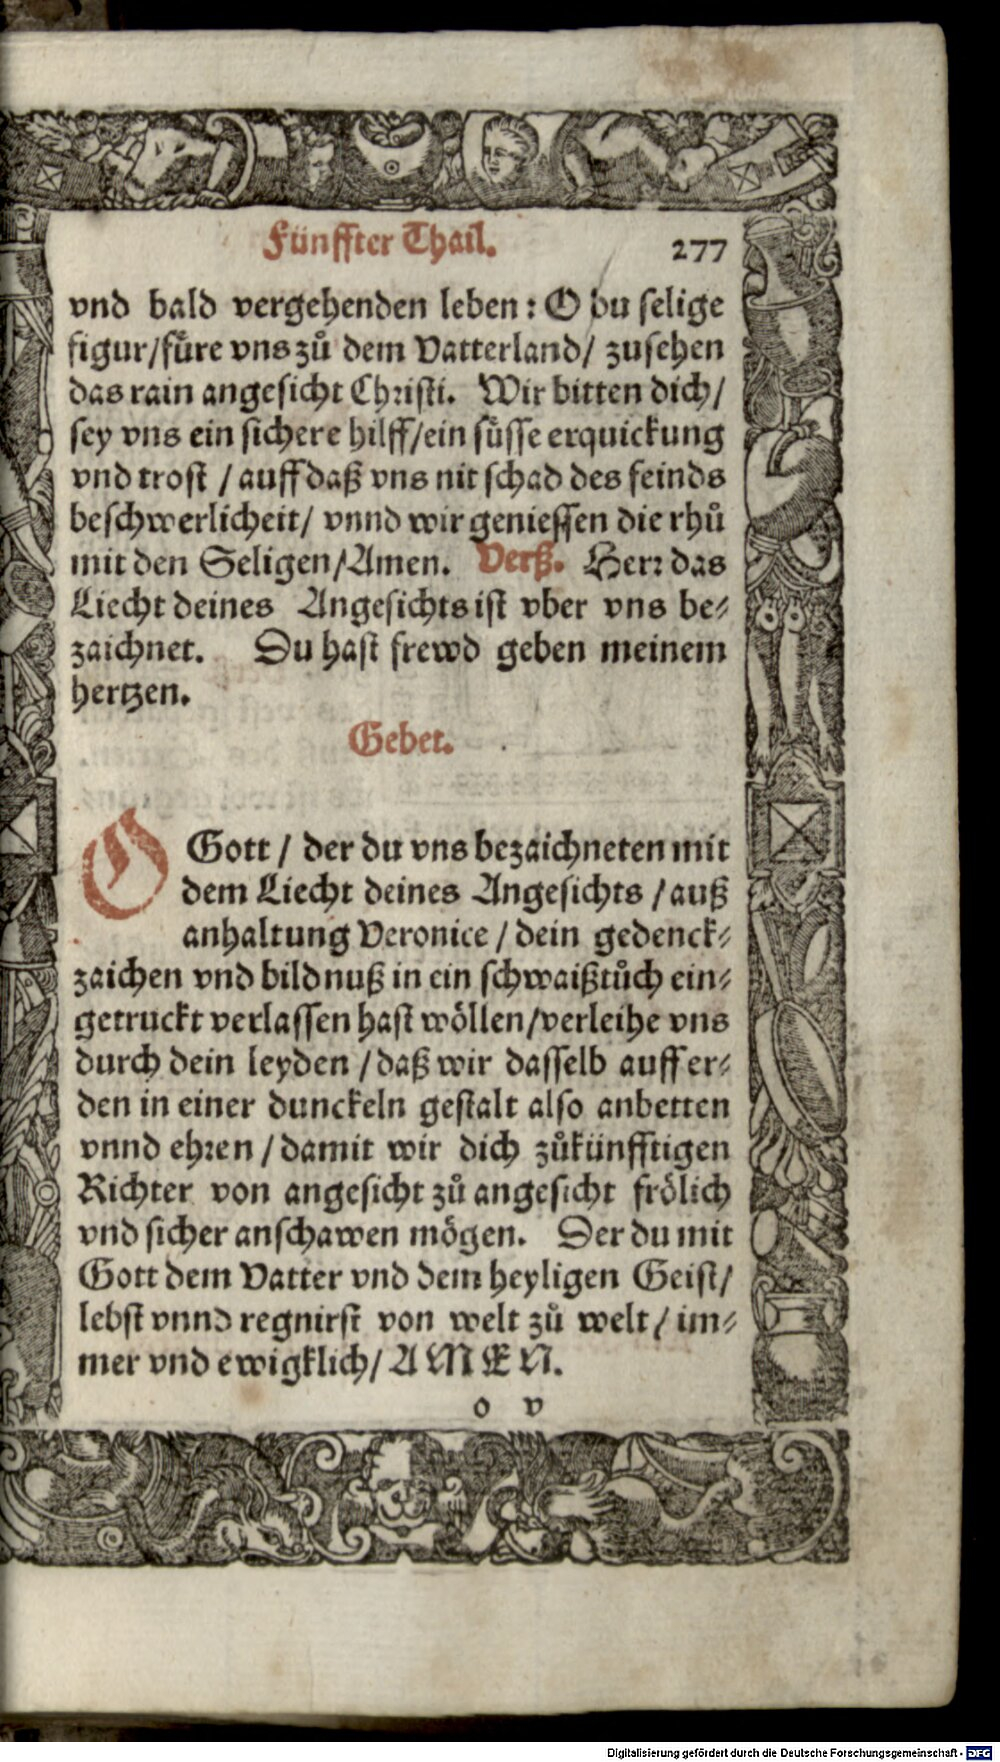 Fünffter Thail. 277
vnd bald vergehenden leben: O du selige
figur/füre vns zů dem Vatterland/ zusehen
das rain angesicht Christi. Wir bitten dich/
sey vns ein sichere hilff/ein süsse erquickung
vnd trost / auff daß vns nit schad des feinds
beschwerlicheit/ vnnd wir geniessen die rhů
mit den Seligen/Amen. Verß. Herr das
Liecht deines Angesichts ist vber vns be-
zaichnet. Du hast frewd geben meinem
hertzen.
Gebet.
O Gott / der du vns bezaichneten mit
dem Liecht deines Angesichts / auß
anhaltung Veronice / dein gedenck-
zaichen vnd bildnuß in ein schwaißtůch ein-
getruckt verlassen hast wöllen/verleihe vns
durch dein leyden / daß wir dasselb auff er-
den in einer dunckeln gestalt also anbetten
vnnd ehren / damit wir dich zůkünfftigen
Richter von angesicht zů angesicht frölich
vnd sicher anschawen mögen. Der du mit
Gott dem Vatter vnd dem heyligen Geist/
lebst vnnd regnirst von welt zů welt / im-
mer vnd ewigklich/ AMEN.
o v
Digitalisierung gefördert durch die Deutsche Forschungsgemeinschaft - DFG